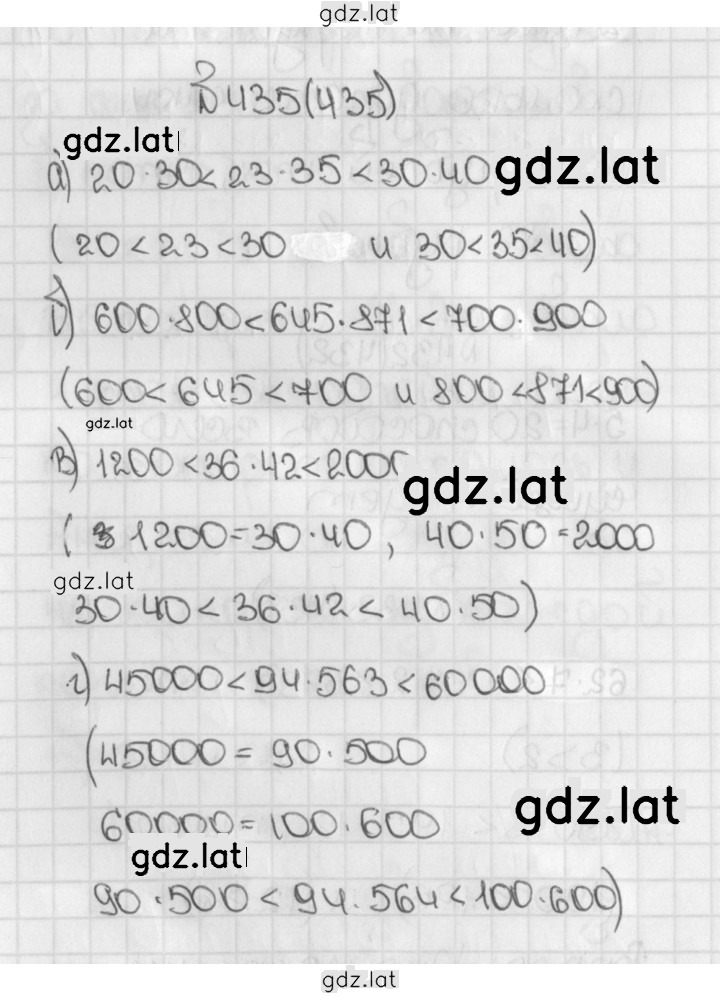 gdz.lat
№ 435(435)
gdz.lat
а) 20·30<23·35<30·40 gdz.lat
(20<23<30 и 30<35<40)
б) 600·800<645·871<700·900
(600<645<700 и 800<871<900)
gdz.lat
в) 1200<36·42<2000
gdz.lat
(1200=30·40, 40·50=2000
gdz.lat
30·40<36·42<40·50)
г) 45000<94·563<60000
(45000=90·500
gdz.lat
60000=100·600
gdz.lat
90·500<94.564<100·600)
gdz.lat